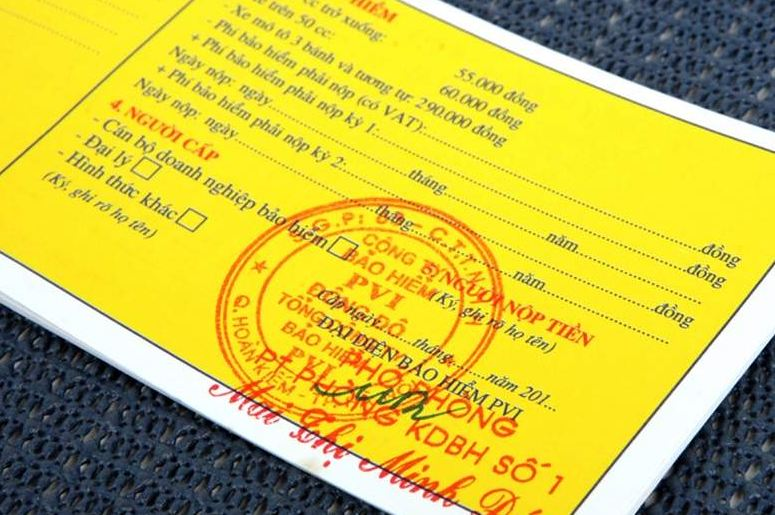 HIỂM
cc trở xuống: 55.000 đồng
xe trên 50 cc: 60.000 đồng
- Xe mô tô 3 bánh và tương tự: 290.000 đồng
- Phí bảo hiểm phải nộp (có VAT):..........đồng
+ Phí bảo hiểm phải nộp kỳ 1:..........đồng
Ngày nộp: ngày..........tháng..........năm..........
+ Phí bảo hiểm phải nộp kỳ 2:..........đồng
Ngày nộp: ngày..........tháng..........năm..........
4. NGƯỜI CẤP
- Cán bộ doanh nghiệp bảo hiểm □
- Đại lý □
- Hình thức khác □
(Ký, ghi rõ họ tên)
NGƯỜI NỘP TIỀN
(Ký, ghi rõ họ tên)
ngày..........tháng..........năm 201...
ĐẠI DIỆN BẢO HIỂM PVI
CÔNG TY
BẢO HIỂM
PVI
ĐÔNG ĐÔ
TỔNG
BẢO HIỂM
PVI
Q. HOÀN KIẾM
PHÓ PHÒNG
PT PHÒNG KDBH SỐ 1
Mai Thị Minh